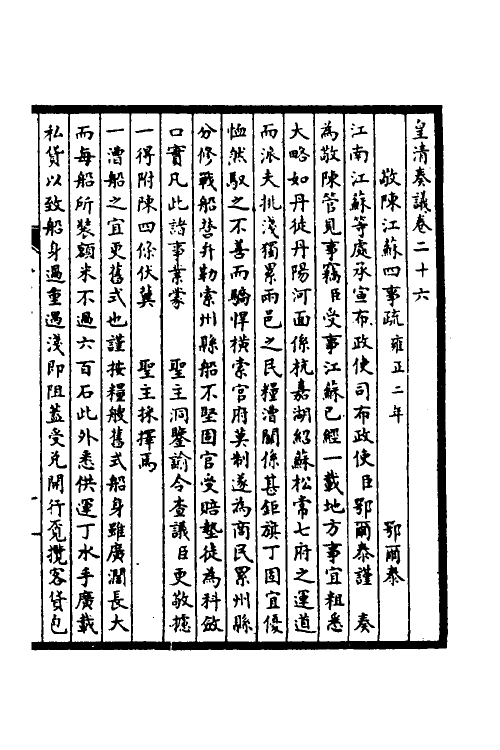 皇清奏議卷二十六
敬陳江蘇四事疏 雍正二年 鄂爾泰
江南江蘇等處承宣布政使司布政使臣鄂爾泰謹 奏
為敬陳管見事竊臣受事江蘇已經一載地方事宜粗悉
大略如丹徒丹陽河面係杭嘉湖紹蘇松常七府之運道
而派夫挑淺獨累兩邑之民糧漕關係甚鉅旗丁固宜優
恤然馭之不善而驕悍橫索官府莫制遂為商民累州縣
分修戰船營弁勒索州縣船不堅固官受賠墊徒為科斂
口實凡此諸事業蒙 聖主洞鑒諭令查議臣更敬攄
一得附陳四條伏冀 聖主採擇焉
一漕船之宜更舊式也謹按糧艘舊式船身雖廣濶長大
而每船所裝額米不過六百石此外悉供運丁水手廣載
私貨以致船身過重遇淺即阻蓋受兌開行覔攬客貨包